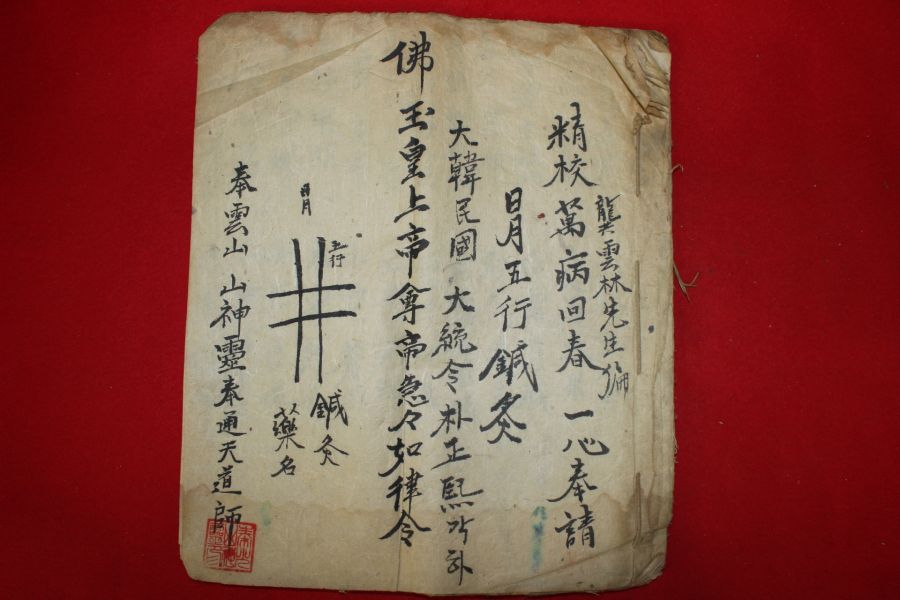 龔雲林先生編
精校萬病回春 一心奉請
日月五行鍼灸
大韓民國 大統令朴正熙각하
佛玉皇上帝尊帝急々如律令
五行
日月
鍼灸
藥名
奉雲山 山神靈奉通天道師